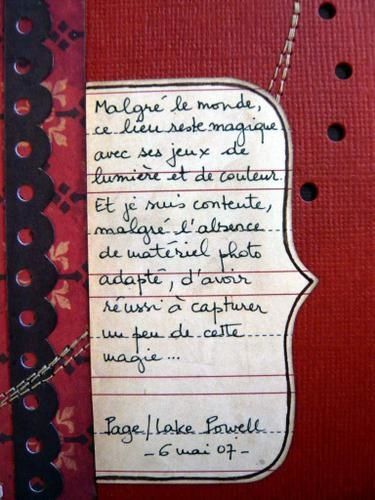 Malgré le monde,
ce lieu reste magique
avec ses jeux de
lumière et de couleur.
Et je suis contente,
malgré l'absence
de matériel photo
adapté, d'avoir
réussi à capturer
un peu de cette
magie...
Page/Lake Powell
- 6 mai 07 -